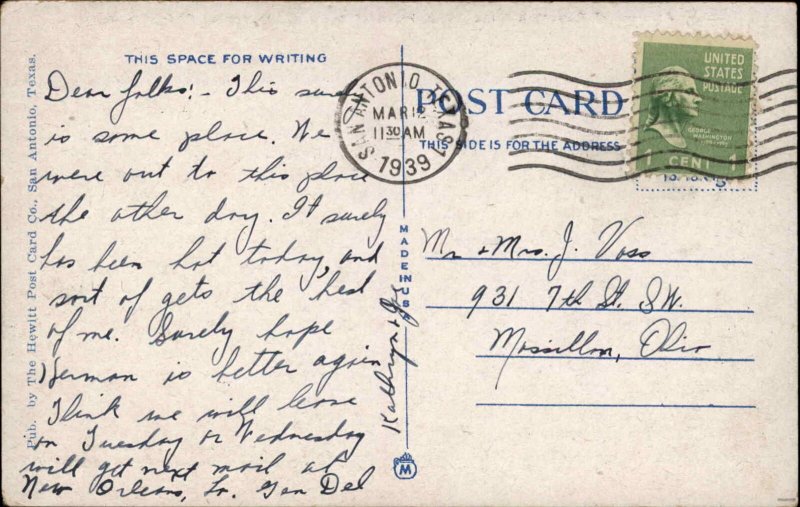 THIS SPACE FOR WRITING
Dear folks: - This sure
is some place. We
were out to this place
the other day. It surely
has been hot today, and
sort of gets the best
of me. Surely hope
Herman is better again
Think we will leave
on Tuesday or Wednesday
will get next mail at
New Orleans, La. Gen Del
Kathryn & Joe
Pub. by The Hewitt Post Card Co., San Antonio, Texas.
MADE IN USA
M
SAN ANTONIO, TEXAS 1
MAR 12
11 30 AM
1939
POST CARD
THIS SIDE IS FOR THE ADDRESS
UNITED
STATES
POSTAGE
GEORGE
WASHINGTON
1 CENT 1
Mr & Mrs. J. Voss
931 7th St. S.W.
Massillon, Ohio